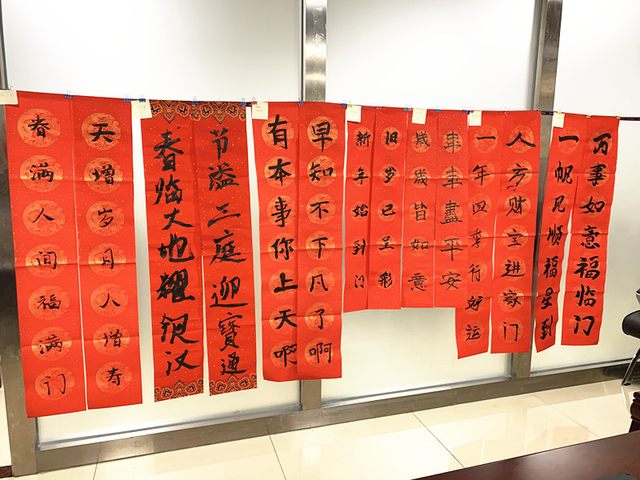 万事如意福临门
一帆风顺福星到
八方财宝进家门
一年四季行好运
年年盡平安
歲歲皆如意
旧岁已呈彩
新年始到门
早知不下凡了啊
有本事你上天啊
节溢三庭迎寶通
春临大地耀银汉
天增岁月人增寿
春满人间福满门